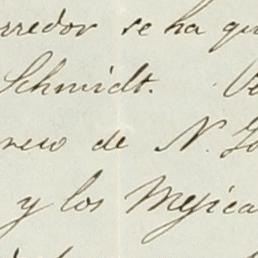 rredor se ha qu
Schmidt. Ve
reso de N. Lo
y los Mejica